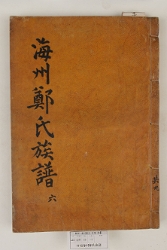 海州鄭氏族譜
六